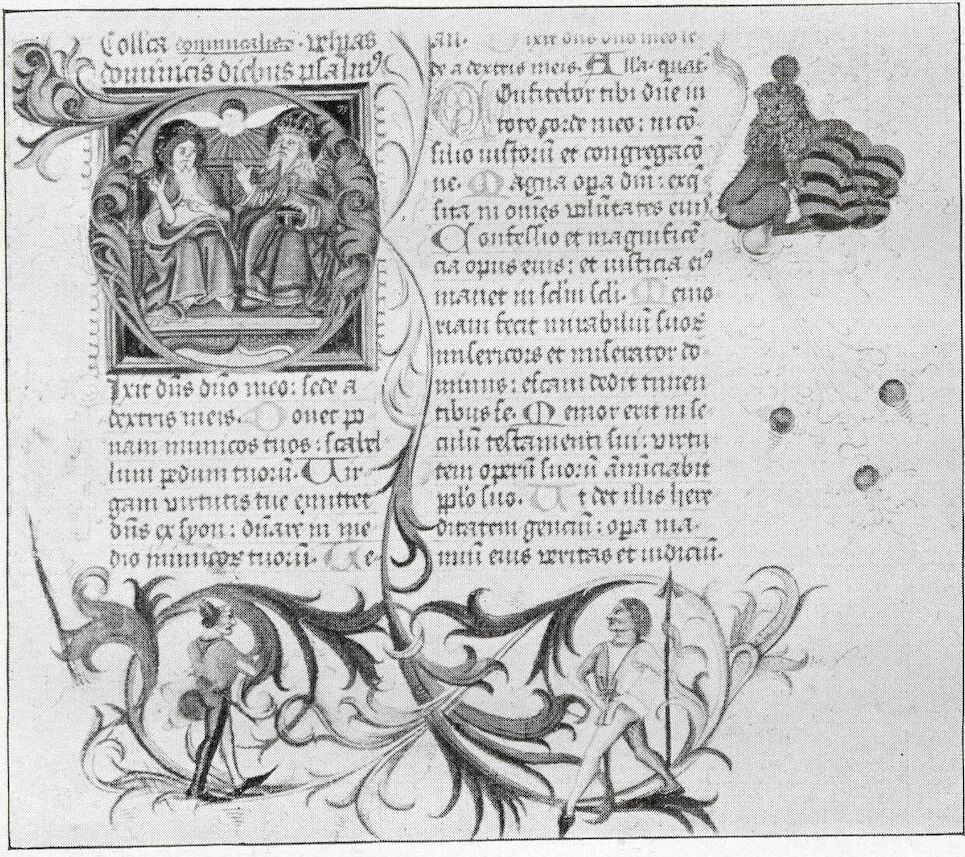 dominicis diebus psalmꝰ
Ixit dñs dño meo: sede a
dextris meis. Donec po
nam inimicos tuos: scabel
lum pedum tuorũ. Uir
gam virtutis tue emittet
dñs ex syon: dñare in me
dio inimicoꝝ tuorũ. Te
añ. Dixit dñs dño meo se
de a dextris meis. Alla. quat.
Confitebor tibi dñe in
toto corde meo: in cõ
silio iustorũ et congregacõ
ne. Magna oꝑa dñi: exq
sita in omẽs volũtates eiꝰ
Confessio et magnificẽ
cia opus eius: et iusticia eiꝰ
manet in sclm̃ scli. Memo
riam fecit mirabiliũ suoꝝ
misericors et miserator do
minus: escam dedit timen
tibus se. Memor erit in se
culũ testamenti sui: virtu
tem operũ suorũ ãnũciabit
pplo suo. Ut det illis here
ditatem genciũ: oꝑa ma
nuũ eius veritas et iudiciũ.